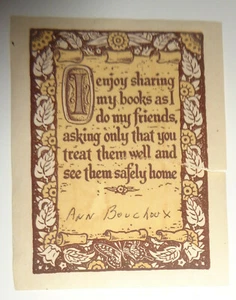 I enjoy sharing
my books as I
do my friends,
asking only that you
treat them well and
see them safely home
Ann Bouchoux